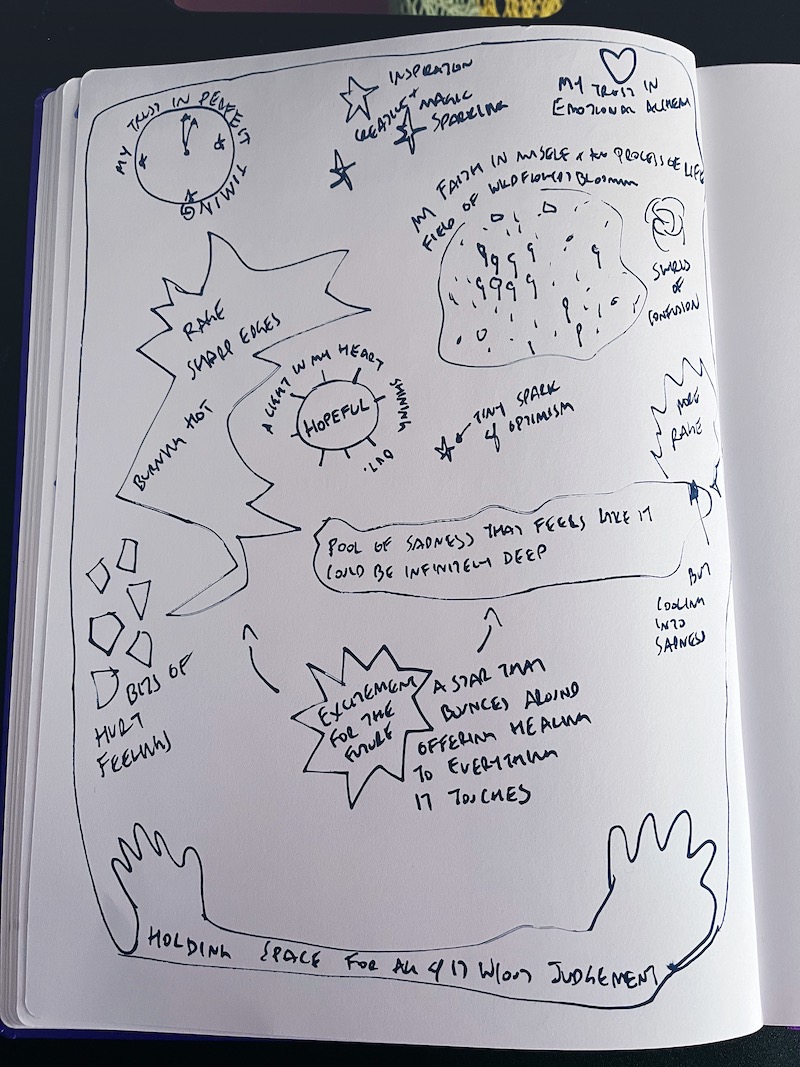 MY TRUST IN PERFEIT TIMING
INSPIRATION
CREATIVE + MAGIC
SPARKLING
MY TRUST IN
EMOTIONAL ALCHEMY
MY FAITH IN MYSELF + THE PROCESS OF LIFE
FIELD OF WILDFLOWERS BLOOMING
SWIRLS
OF
CONFUSION
RAGE
SHARP EDGES
BURNING HOT
A LIGHT IN MY HEART SHINING OUT.
HOPEFUL
TINY SPARK
OF OPTIMISM
MORE
RAGE
BUT
COOLING
INTO
SADNESS
POOL OF SADNESS THAT FEELS LIKE IT
COULD BE INFINITELY DEEP
BITS OF
HURT
FEELINGS
EXCITEMENT
FOR THE
FUTURE
A STAR THAT
BOUNCES AROUND
OFFERING HEALING
TO EVERYTHING
IT TOUCHES
HOLDING SPACE FOR ALL OF IT W/OUT JUDGEMENT